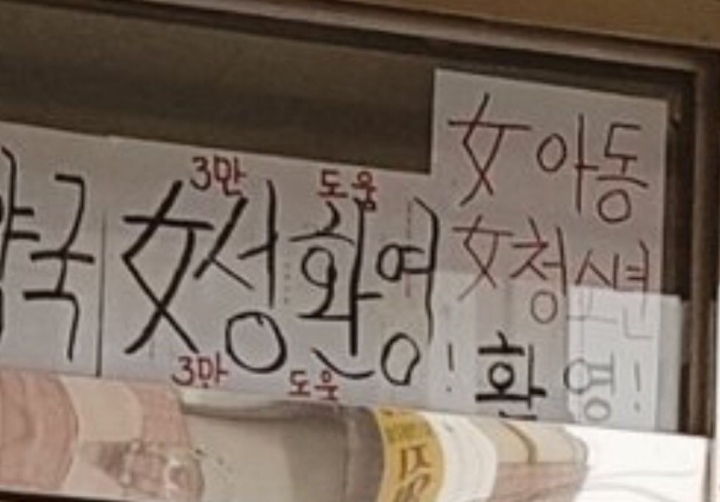 3만 도움
약국 女성환영!
3만 도움
女아동
女청소년
환영!